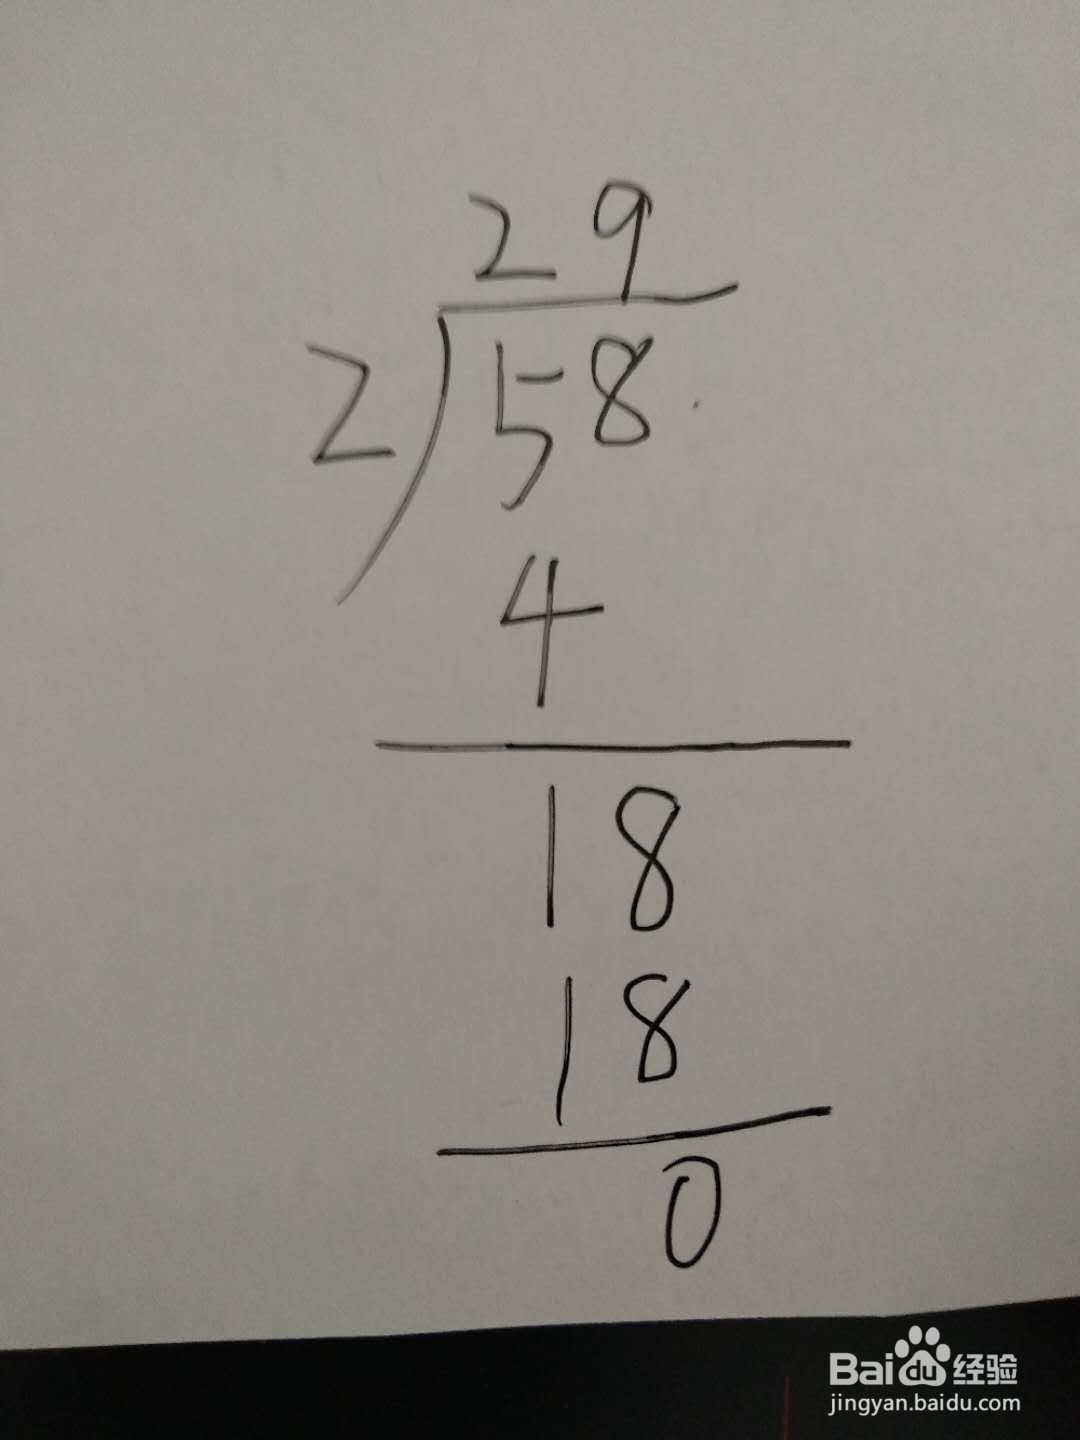 29
2)58
4
18
18
0
Bai du 经验
jingyan.baidu.com